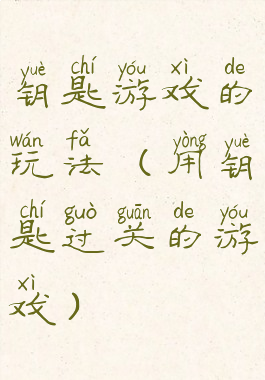 yuè chí yóu xì de
钥匙游戏的
wán fǎ yòng yuè
玩法(用钥
chí guò guān de yóu
匙过关的游
xì
戏)